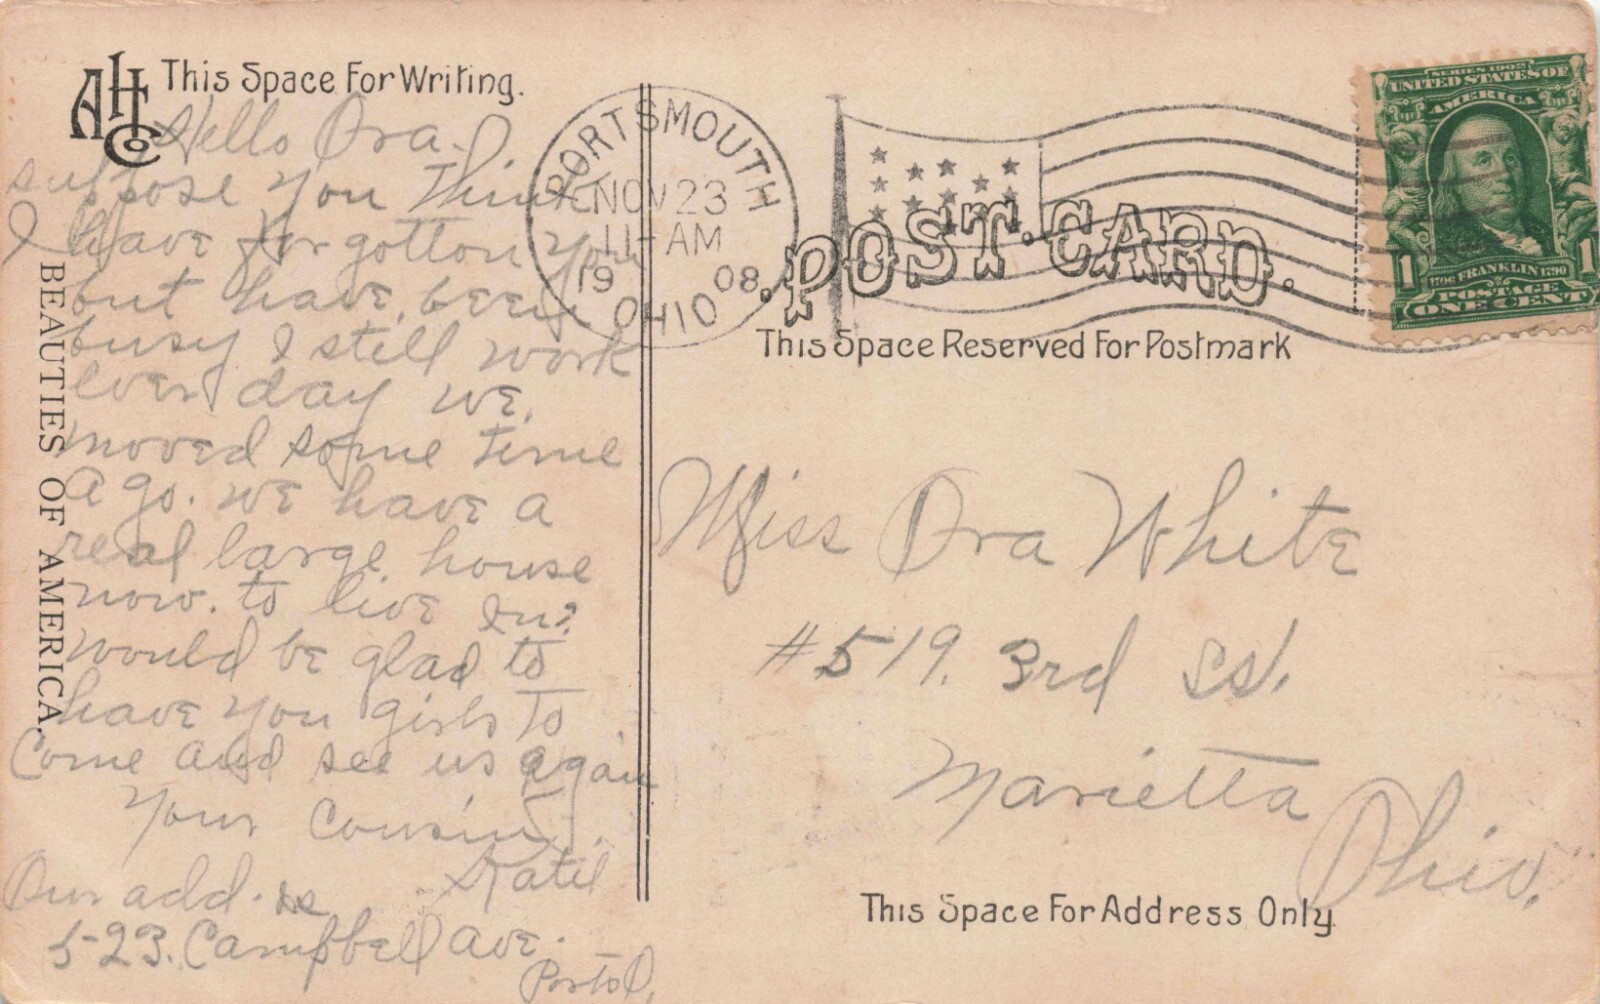 AHCo
This Space For Writing.
Hello Ora.
suppose you think
I have forgotton you
but have been
busy I still work
ever day we
moved some time
ago. we have a
real large house
now. to live in?
would be glad to
have you girls to
Come and see us again
Your Cousin
Katie
Our add. is
523. Campbell ave.
BEAUTIES OF AMERICA.
PORTSMOUTH
NOV 23
11-AM
1908
OHIO
POST CARD.
This Space Reserved For Postmark
SERIES 1902
UNITED STATES OF
AMERICA
1706 FRANKLIN 1790
1 1
POSTAGE
ONE CENT
Miss Ora White
#519. 3rd St.
Marietta
Ohio.
This Space For Address Only